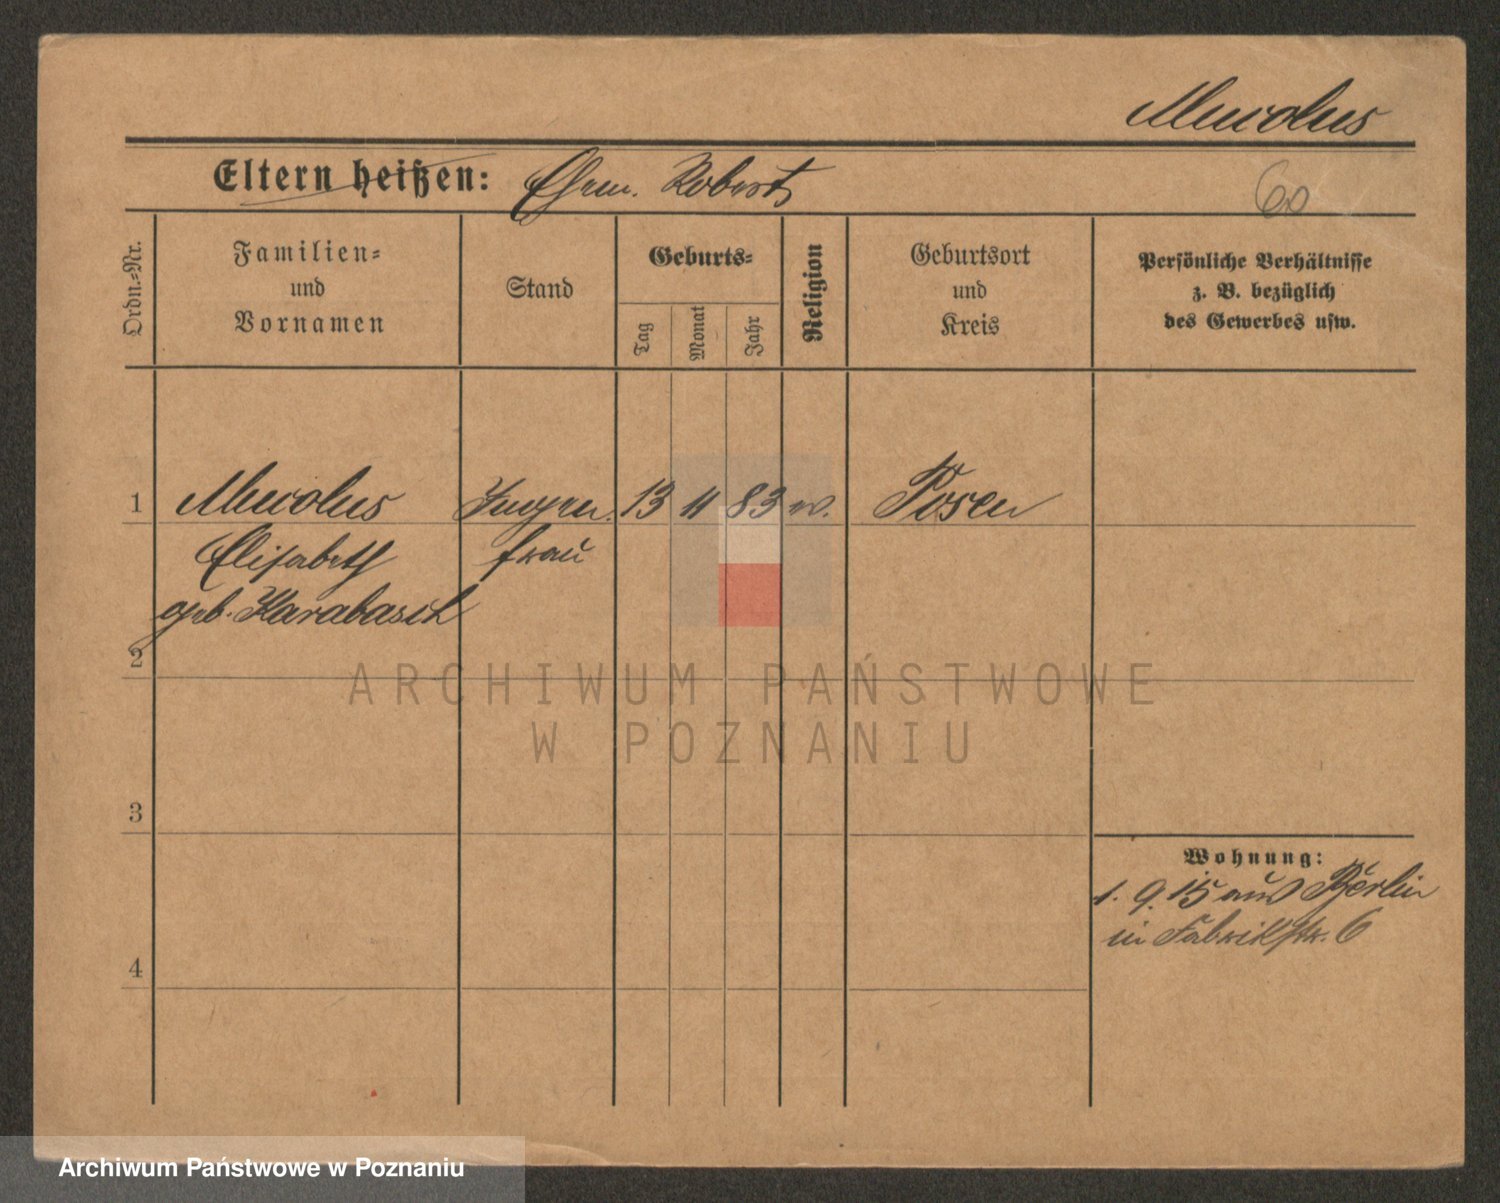 Murolus
Eltern heißen: Ehem. Robert
60
Ordn.-Nr.
Familien-
und
Vornamen
Stand
Geburts-
Tag
Monat
Jahr
Religion
Geburtsort
und
Kreis
Persönliche Verhältnisse
z. B. bezüglich
des Gewerbes usw.
1 13 11 83 Posen
Elisabeth frau
geb. Karabasch
2
3
4
Wohnung:
1. 9. 15 aus Berlin
in Fabrikstr. 6
ARCHIWUM PAŃSTWOWE
W POZNANIU
Archiwum Państwowe w Poznaniu